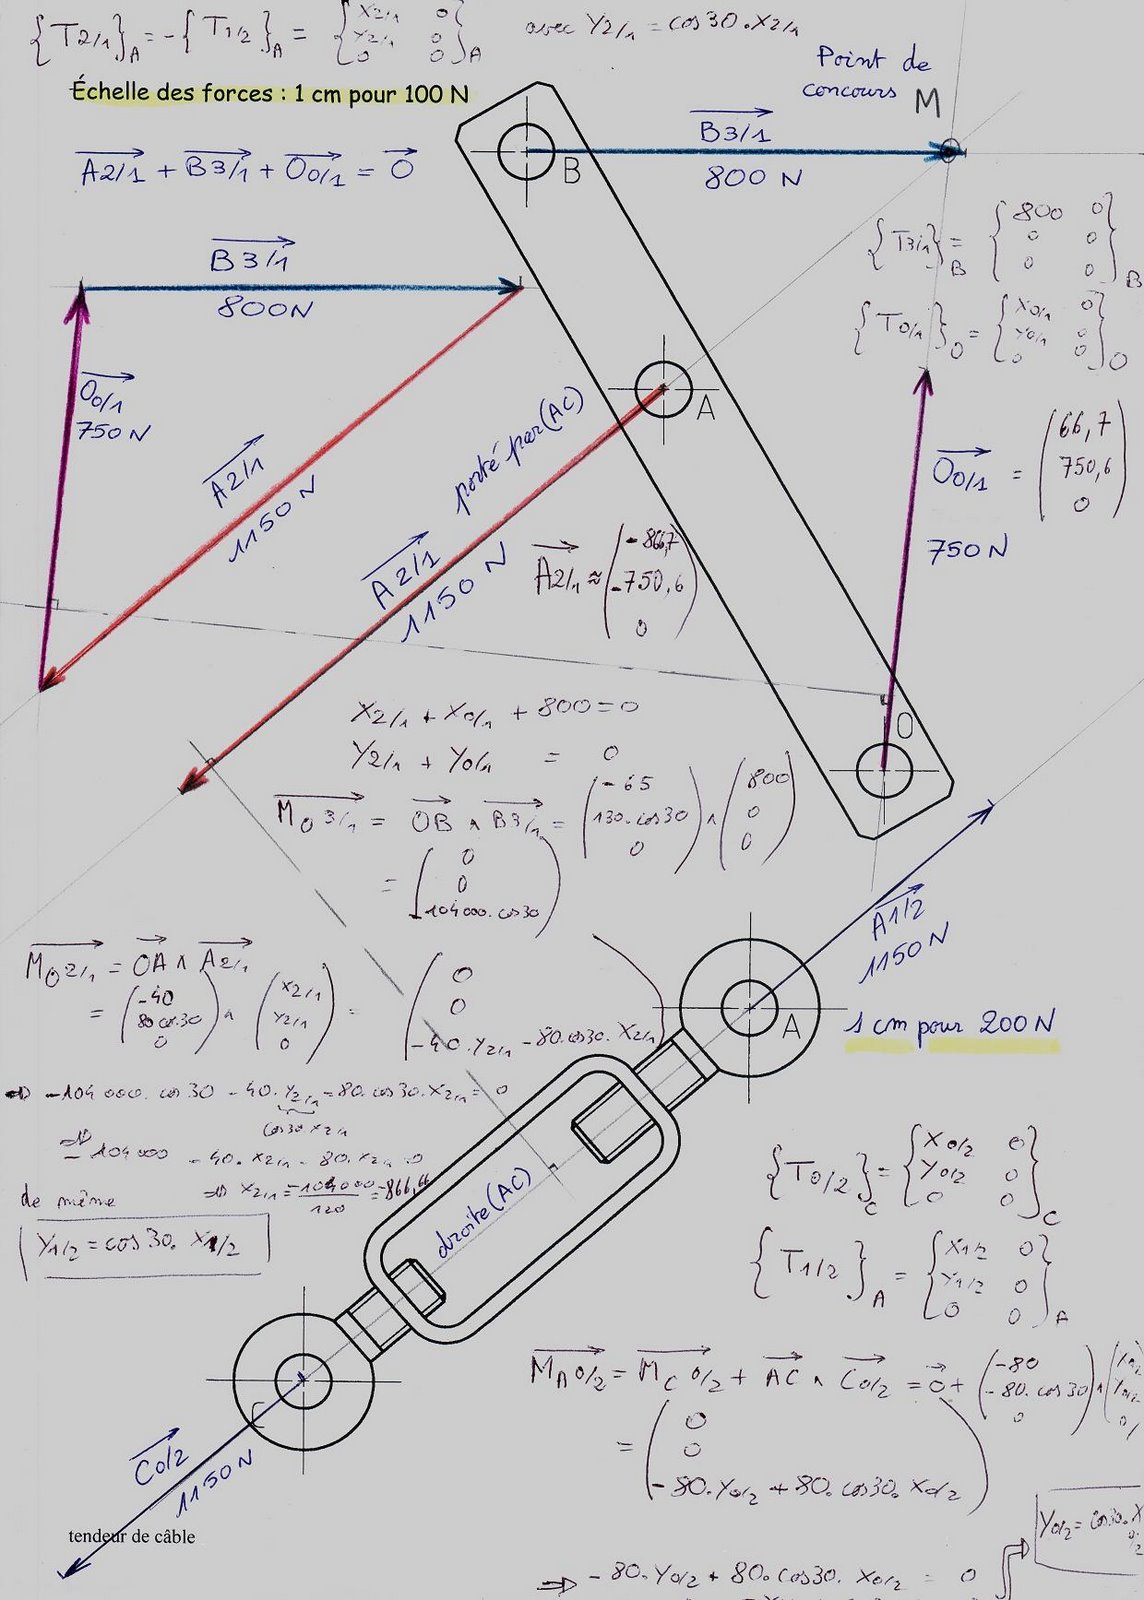 {T2/1}A = -{T1/2}A = {X2/1 0 Y2/1 0 0 0}A avec Y2/1 = cos30.X2/1
Échelle des forces : 1 cm pour 100 N
Point de
concours M
A2/1 + B3/1 + O0/1 = O
B3/1
800 N
B
B3/1
800N
{T3/1}B = {800 0 0 0 0 0}B
{T0/1}O = {X0/1 0 Y0/1 0 0 0}O
O0/1
750N
A2/1
1150 N
porté par (AC)
A
A2/1
1150 N
A2/1 ≈ (-866,7 -750,6 0)
O0/1 = (66,7 750,6 0)
750 N
O
X2/1 + X0/1 + 800 = 0
Y2/1 + Y0/1 = 0
MO 3/1 = OB ∧ B3/1 = (-65 130.cos30 0) ∧ (800 0 0)
= (0 0 -104000.cos30)
A1/2
1150 N
MO 2/1 = OA ∧ A2/1
= (-40 80cos.30 0) ∧ (X2/1 Y2/1 0) = (0 0 -40.Y2/1 - 80.cos30.X2/1)
A
1 cm pour 200 N
⇒ -104 000.cos 30 - 40.Y2/1 - 80.cos30.X2/1 = 0
cos30.X2/1
⇒ -104 000 - 40.X2/1 - 80.X2/1 = 0
⇒ X2/1 = 104000/120 = -866,66
de même
Y1/2 = cos 30. X1/2
droite (AC)
{T0/2}C = {X0/2 0 Y0/2 0 0 0}C
{T1/2}A = {X1/2 0 Y1/2 0 0 0}A
MA 0/2 = MC 0/2 + AC ∧ C0/2 = 0 + (-80 -80.cos30 0) ∧ (X0/2 Y0/2 0)
= (0 0 -80.Y0/2 + 80.cos30.X0/2)
C
C0/2
1150 N
tendeur de câble
Y0/2 = cos30.X0/2
⇒ -80.Y0/2 + 80.cos30.X0/2 = 0